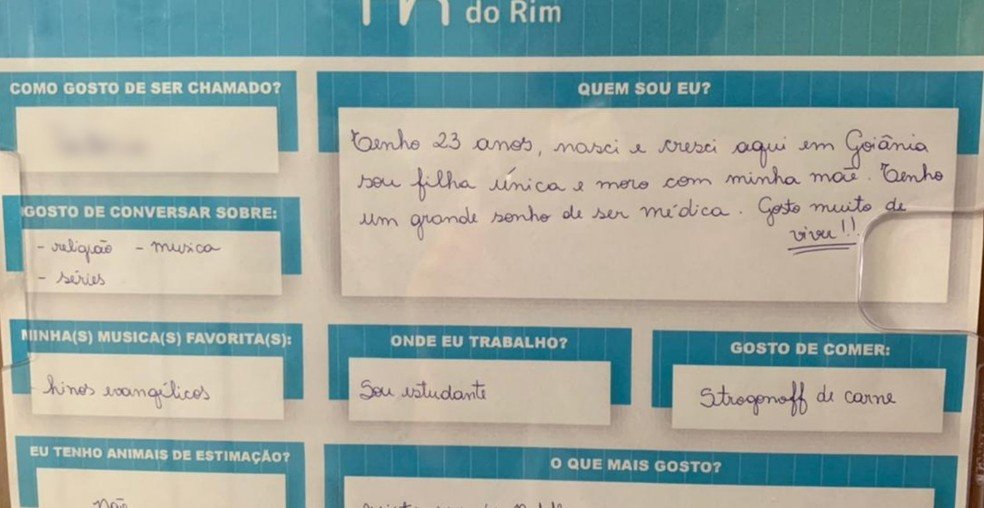 do Rim
COMO GOSTO DE SER CHAMADO?
QUEM SOU EU?
Tenho 23 anos, nasci e cresci aqui em Goiânia
sou filha única e moro com minha mãe. Tenho
um grande sonho de ser médica. Gosto muito de
viver!!
GOSTO DE CONVERSAR SOBRE:
- religião - musica
- séries
MINHA(S) MUSICA(S) FAVORITA(S):
hinos evangélicos
ONDE EU TRABALHO?
Sou estudante
GOSTO DE COMER:
Strogonoff de carne
EU TENHO ANIMAIS DE ESTIMAÇÃO?
não
O QUE MAIS GOSTO?